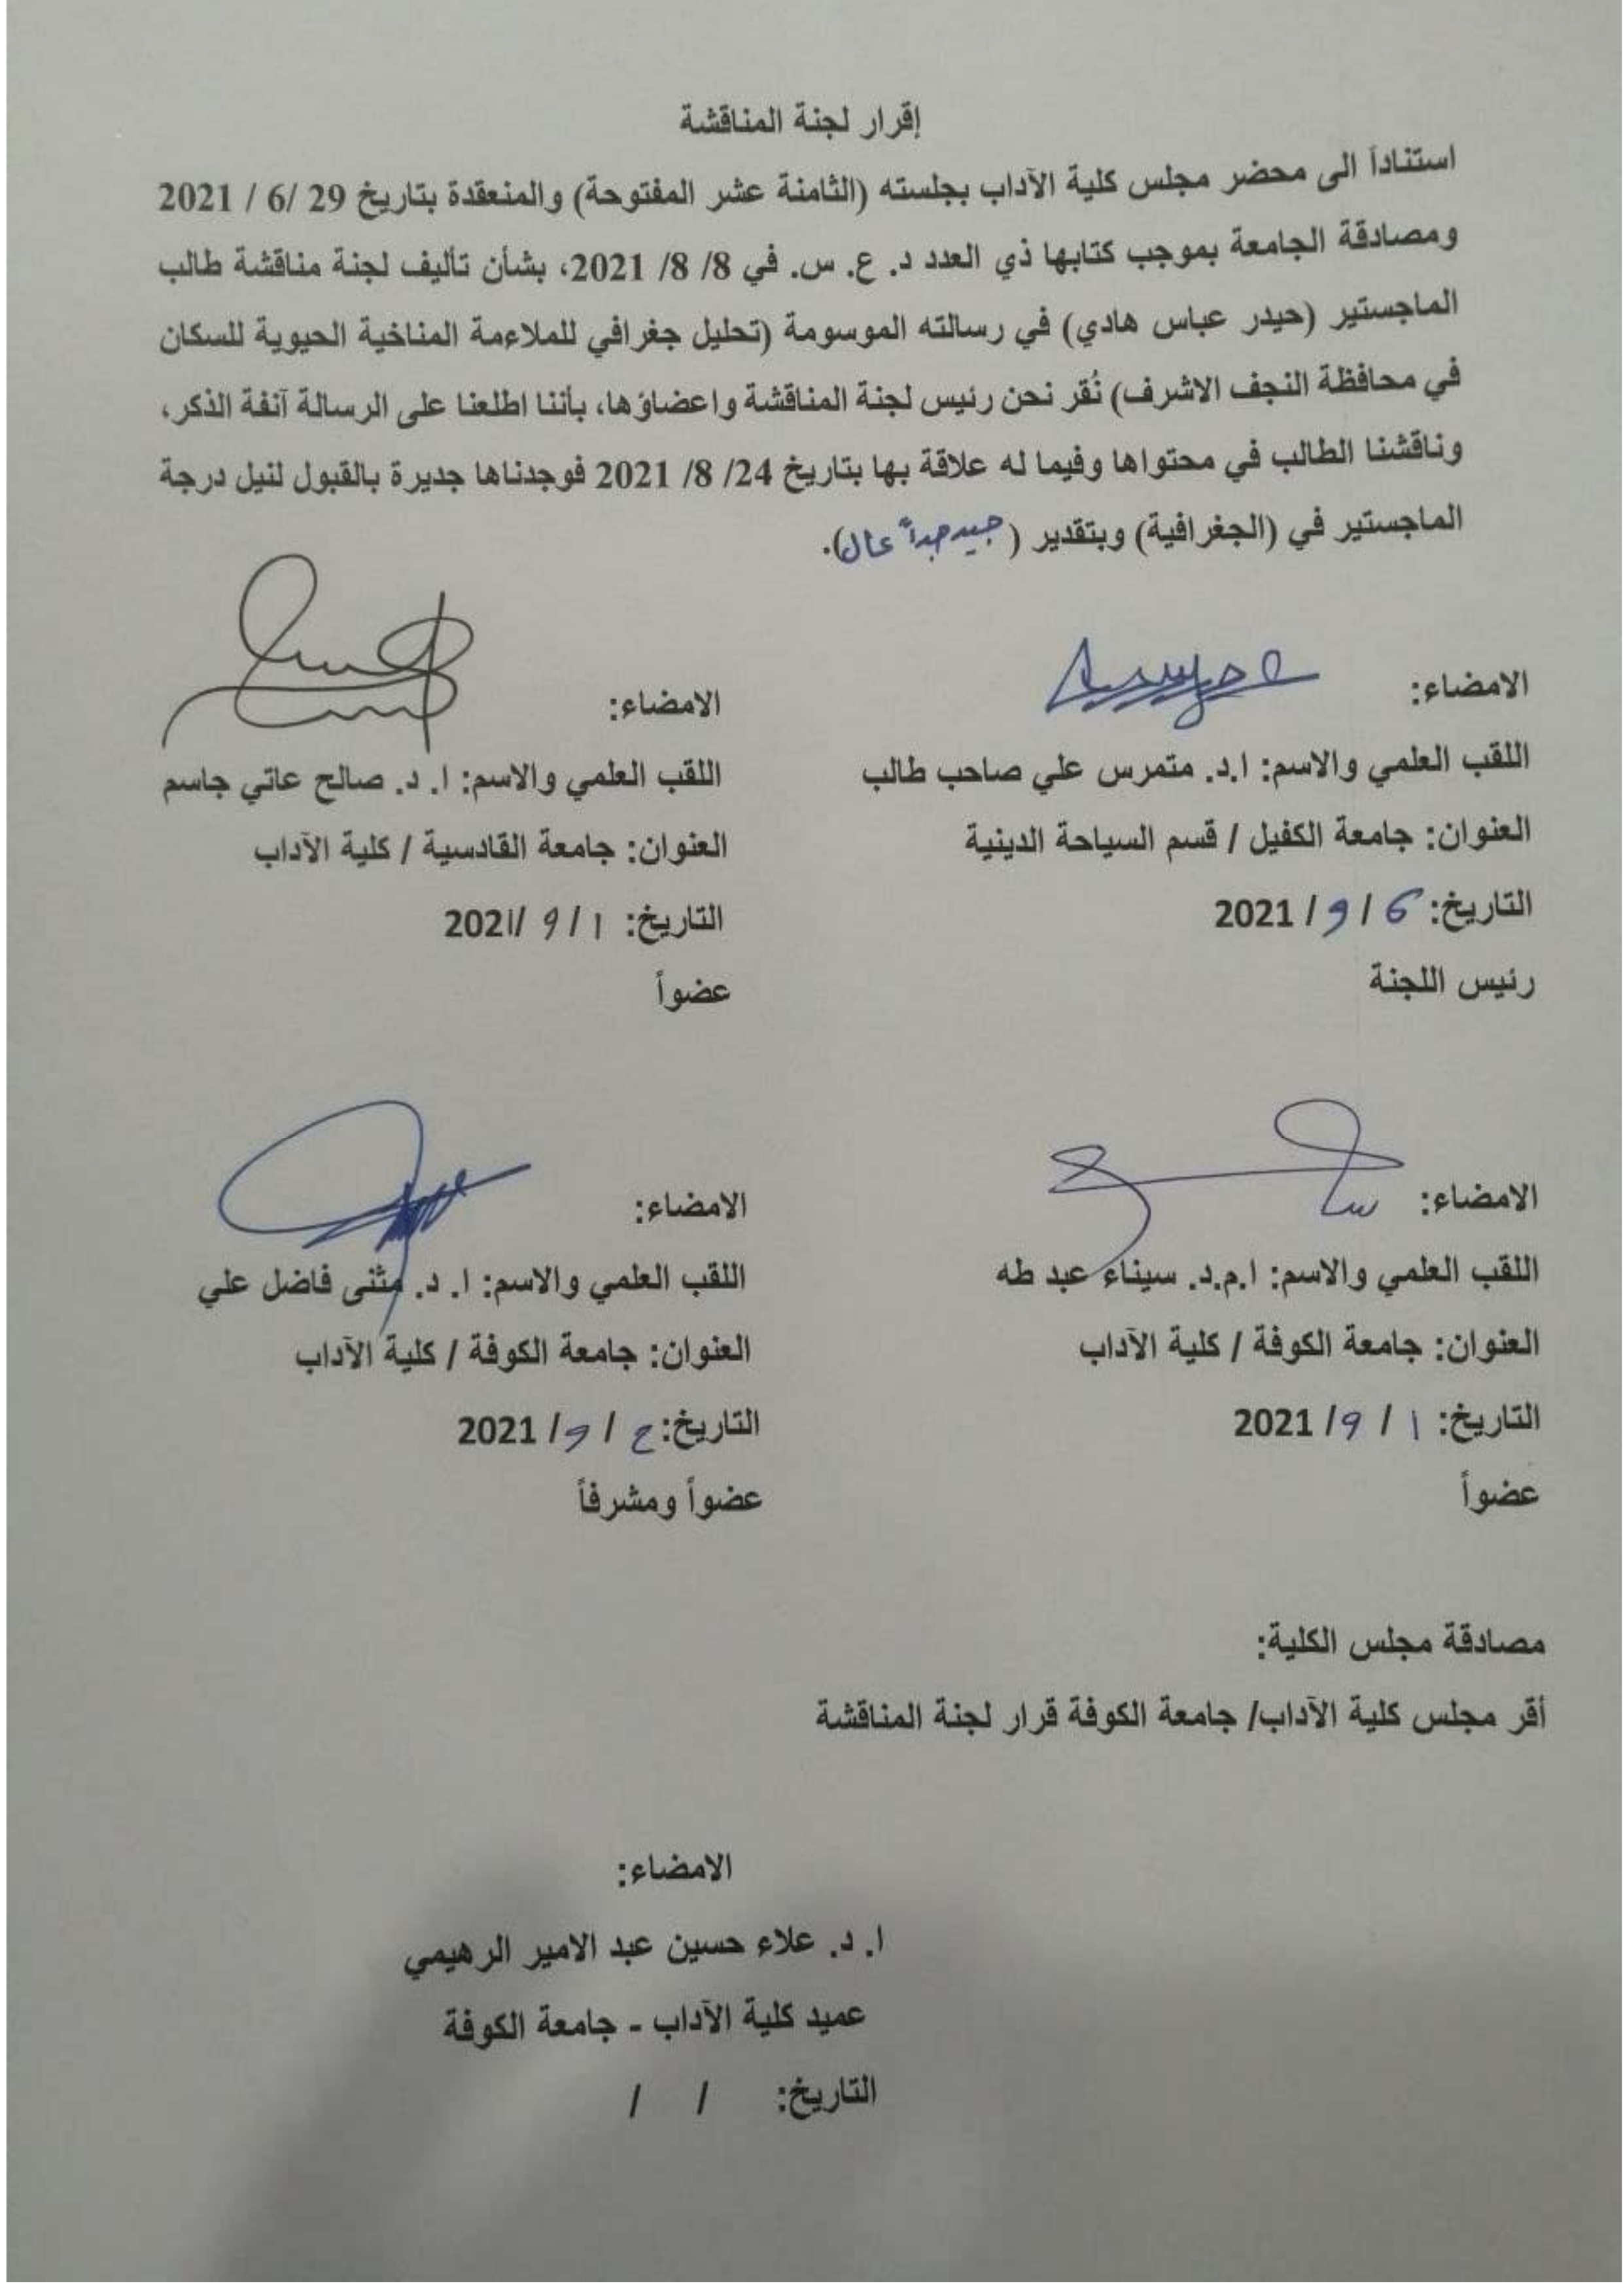 إقرار لجنة المناقشة
استناداً الى محضر مجلس كلية الآداب بجلسته (الثامنة عشر المفتوحة) والمنعقدة بتاريخ 29 /6 / 2021
ومصادقة الجامعة بموجب كتابها ذي العدد د. ع. س. في 8/ 8/ 2021، بشأن تأليف لجنة مناقشة طالب
الماجستير (حيدر عباس هادي) في رسالته الموسومة (تحليل جغرافي للملاءمة المناخية الحيوية للسكان
في محافظة النجف الاشرف) نُقر نحن رئيس لجنة المناقشة واعضاؤها، بأننا اطلعنا على الرسالة آنفة الذكر،
وناقشنا الطالب في محتواها وفيما له علاقة بها بتاريخ 24/ 8/ 2021 فوجدناها جديرة بالقبول لنيل درجة
الماجستير في (الجغرافية) وبتقدير (جيد جداً عال).
الامضاء:
اللقب العلمي والاسم: ا.د. متمرس علي صاحب طالب
العنوان: جامعة الكفيل / قسم السياحة الدينية
التاريخ: 6 / 9 / 2021
رئيس اللجنة
الامضاء:
اللقب العلمي والاسم: ا. د. صالح عاتي جاسم
العنوان: جامعة القادسية / كلية الآداب
التاريخ: 1 / 9 /2021
عضواً
الامضاء:
اللقب العلمي والاسم: ا.م.د. سيناء عبد طه
العنوان: جامعة الكوفة / كلية الآداب
التاريخ: 1 / 9/ 2021
عضواً
الامضاء:
اللقب العلمي والاسم: ا. د. مثنى فاضل علي
العنوان: جامعة الكوفة / كلية الآداب
التاريخ: / 9/ 2021
عضواً ومشرفاً
مصادقة مجلس الكلية:
أقر مجلس كلية الآداب/ جامعة الكوفة قرار لجنة المناقشة
الامضاء:
ا. د. علاء حسين عبد الامير الرهيمي
عميد كلية الآداب - جامعة الكوفة
التاريخ: / /